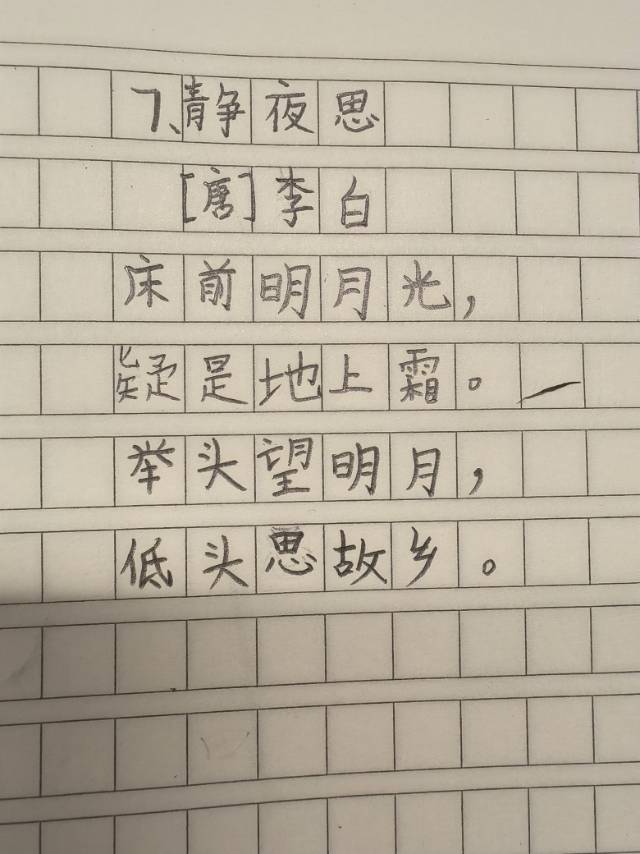 7、静夜思
[唐]李白
床前明月光，
疑是地上霜。
举头望明月，
低头思故乡。